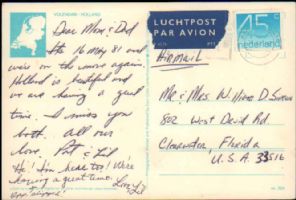 VOLENDAM - HOLLAND
Dear Mom & Dad
the 16 May 81 and
we're on the move again.
Holland is beautiful and
we are having a great
time. I miss you
both. all our
love Pat & Lil
"Hi! I'm here too! We're
having a great time. Love,
LUCHTPOST
PAR AVION
45 c
nederland
Airmail
Mr & Mrs. W.
802 West David Rd.
Clearwater, Florida
U.S.A. 33516